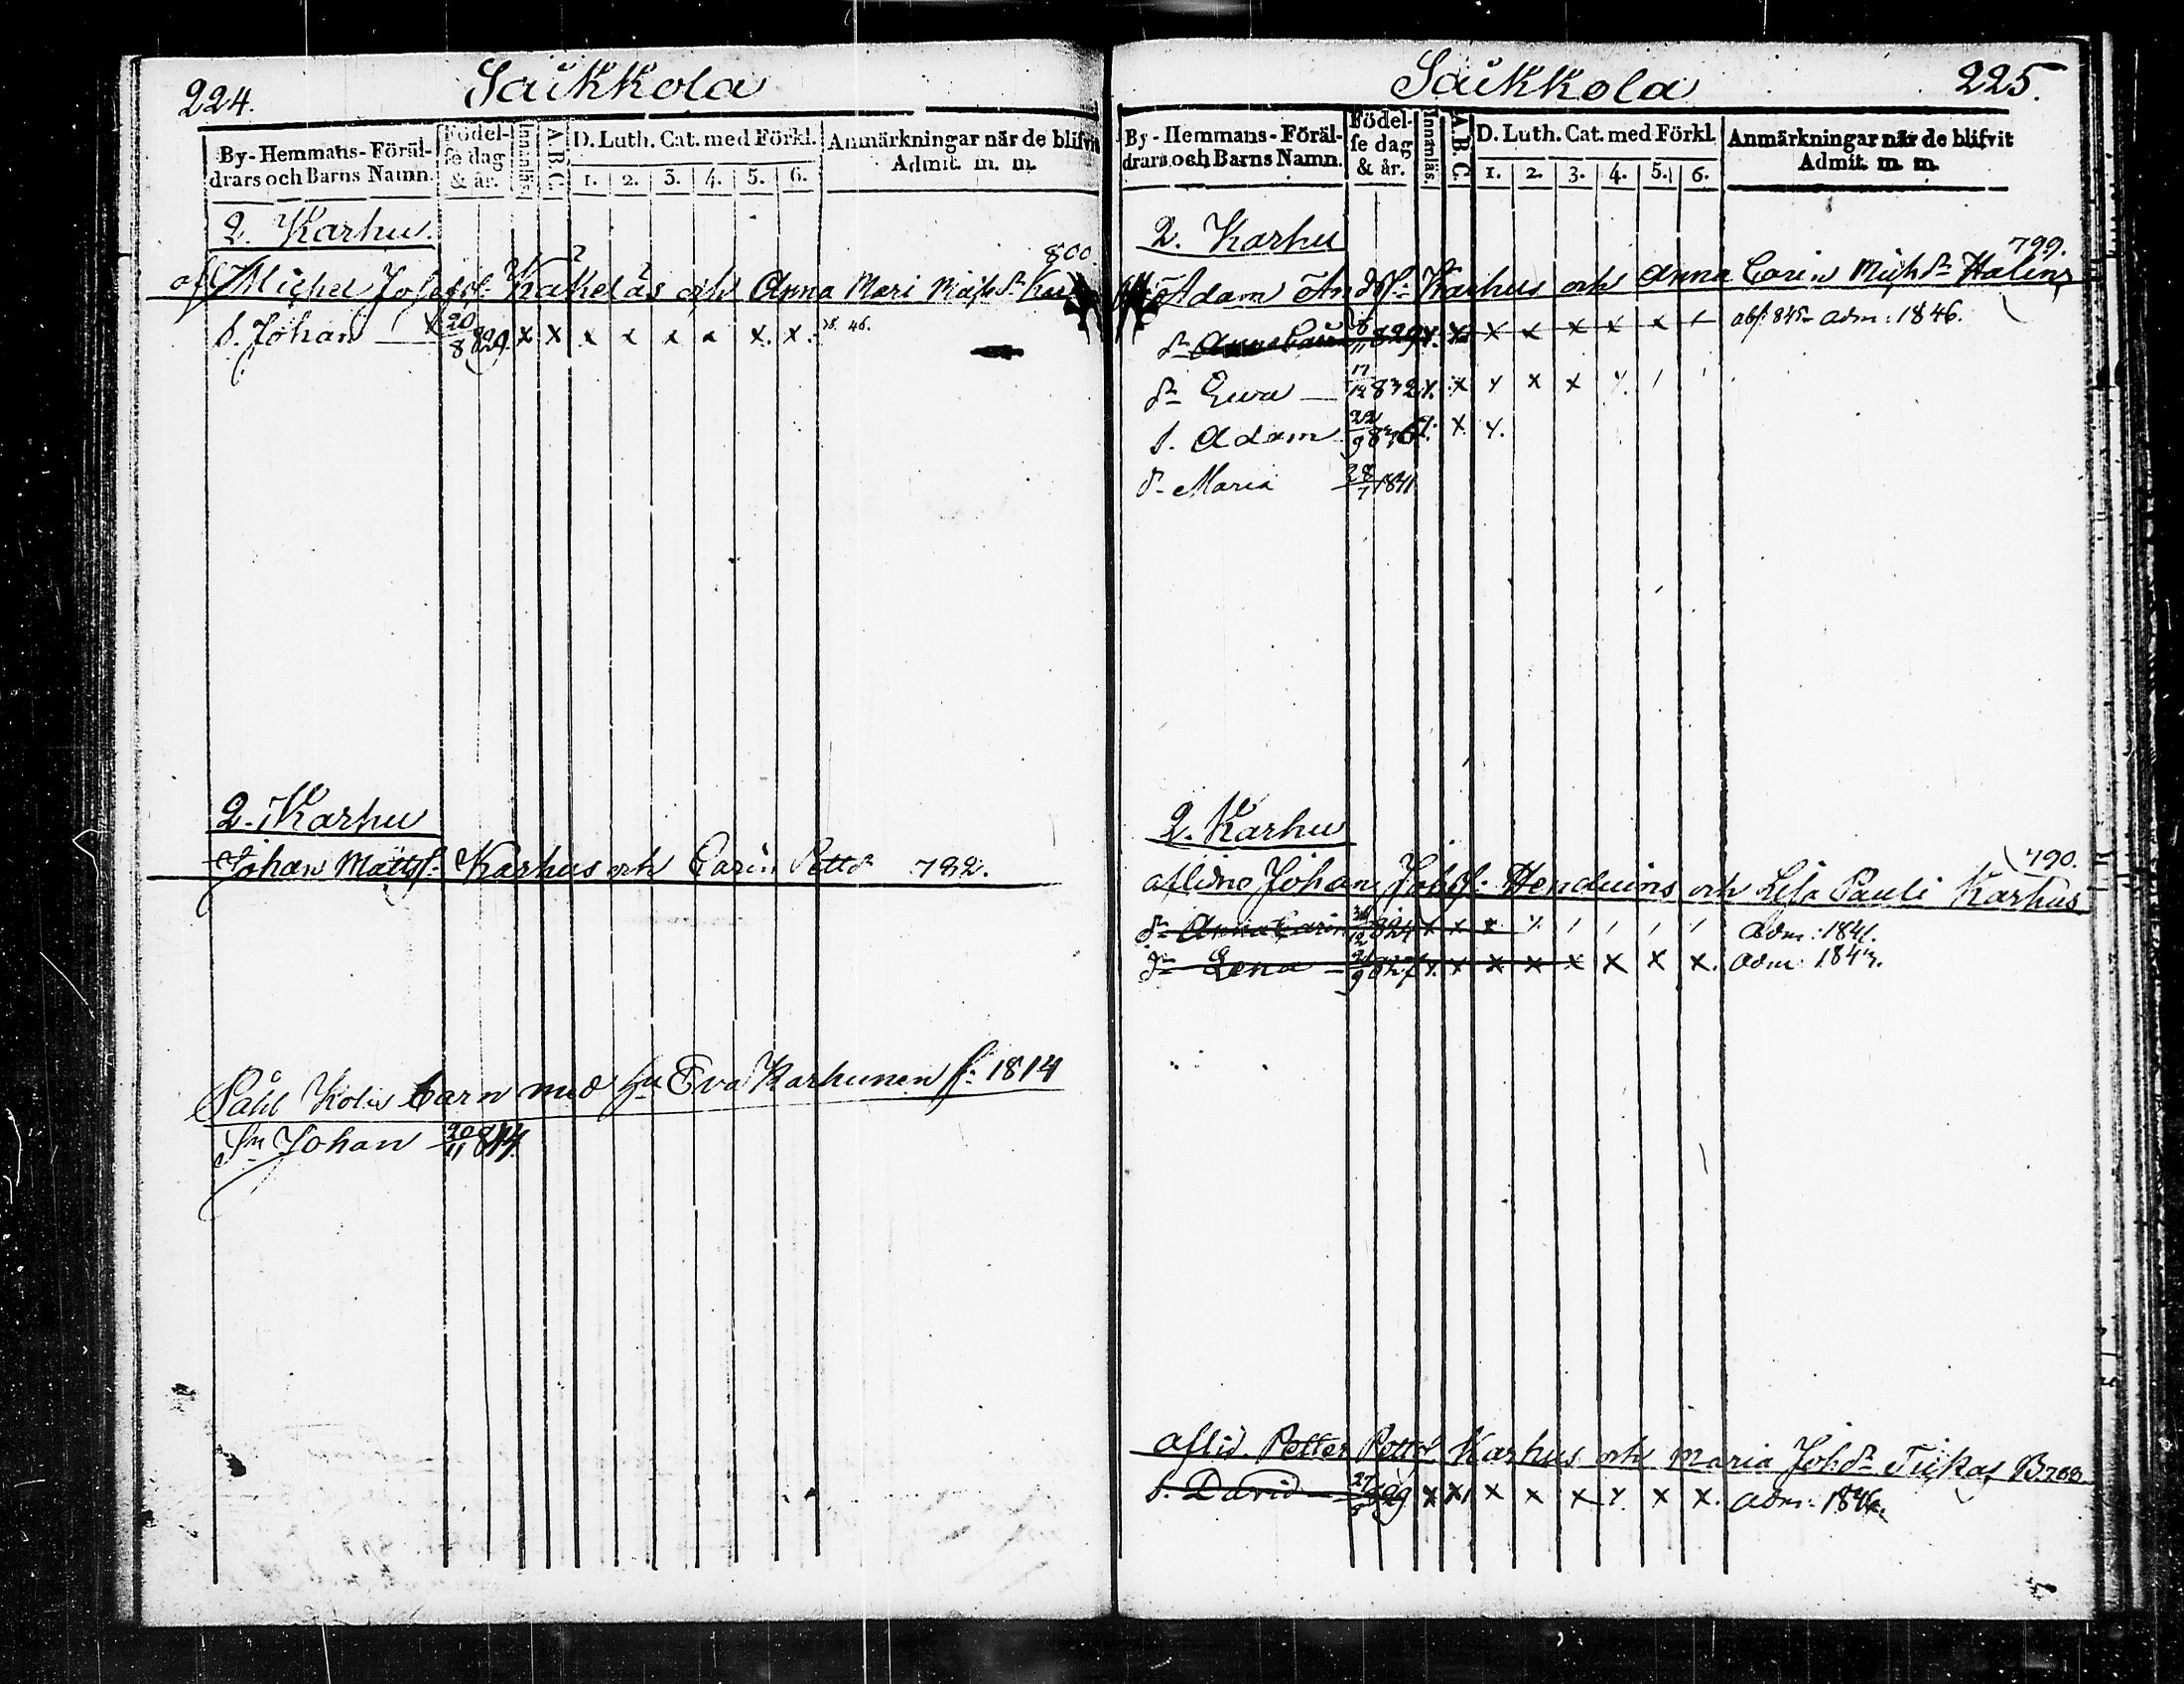 224.
Saukkola
By-Hemmans-Föräl-
drars och Barns Namn.
Födel-
se dag
& år.
Innanläs.
A.B.C.
D. Luth. Cat. med Förkl.
1. 2. 3. 4. 5. 6.
Anmärkningar när de blifvit
Admit. m. m.
2. Karhu.
800.
Michel och Anna Mari
S. Johan 20/8 829. x x x x x x x x. 46.
2. Karhu
Johan Mattss: Karhus och Carin Pettd 792.
Påhl Kolis barn med Eva Karhunen f: 1814
Sn Johan 20/11 844.
Saukkola
225.
By-Hemmans-Föräl-
drars och Barns Namn.
Födel-
se dag
& år.
Innanläs.
A.B.C.
D. Luth. Cat. med Förkl.
1. 2. 3. 4. 5. 6.
Anmärkningar när de blifvit
Admit. m. m.
2. Karhu
799.
Adam Karhus och Anna Carin Michdr
829 x. x x x x x x abs: 845 adm: 1846.
dr Ewa 17/12 832 x. x x x x x.
S. Adam 22/9 x x.
dr Maria 28/7 1841
2. Karhu
790.
aflidne Johan Johss: och Lisa Pauli Karhus
dr Anna Carin 824 x x x x. Adm: 1841.
dr Lena 827 x. x x x x x x x. Adm: 1843.
aflid. Petter Karhus och Maria Johdr
S. David 829 x x x x x x. x x. Adm: 1846.